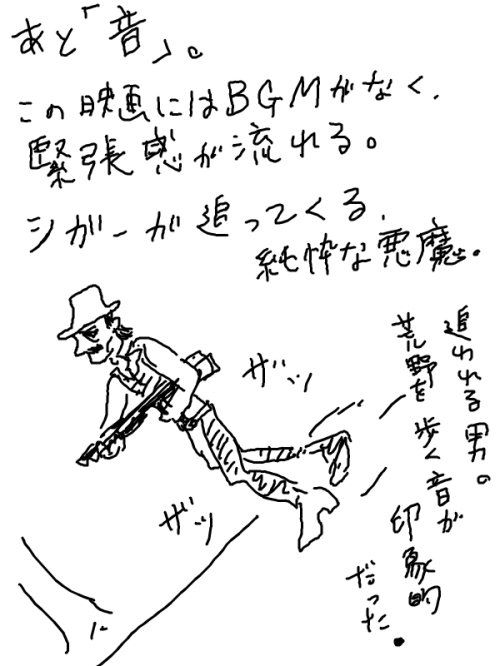 あと「音」。
この映画にはBGMがなく、
緊張感が流れる。
シガーが追ってくる、
純粋な悪魔。
追われる男の
荒野を歩く音が
印象的
だった。
ザッ
ザッ